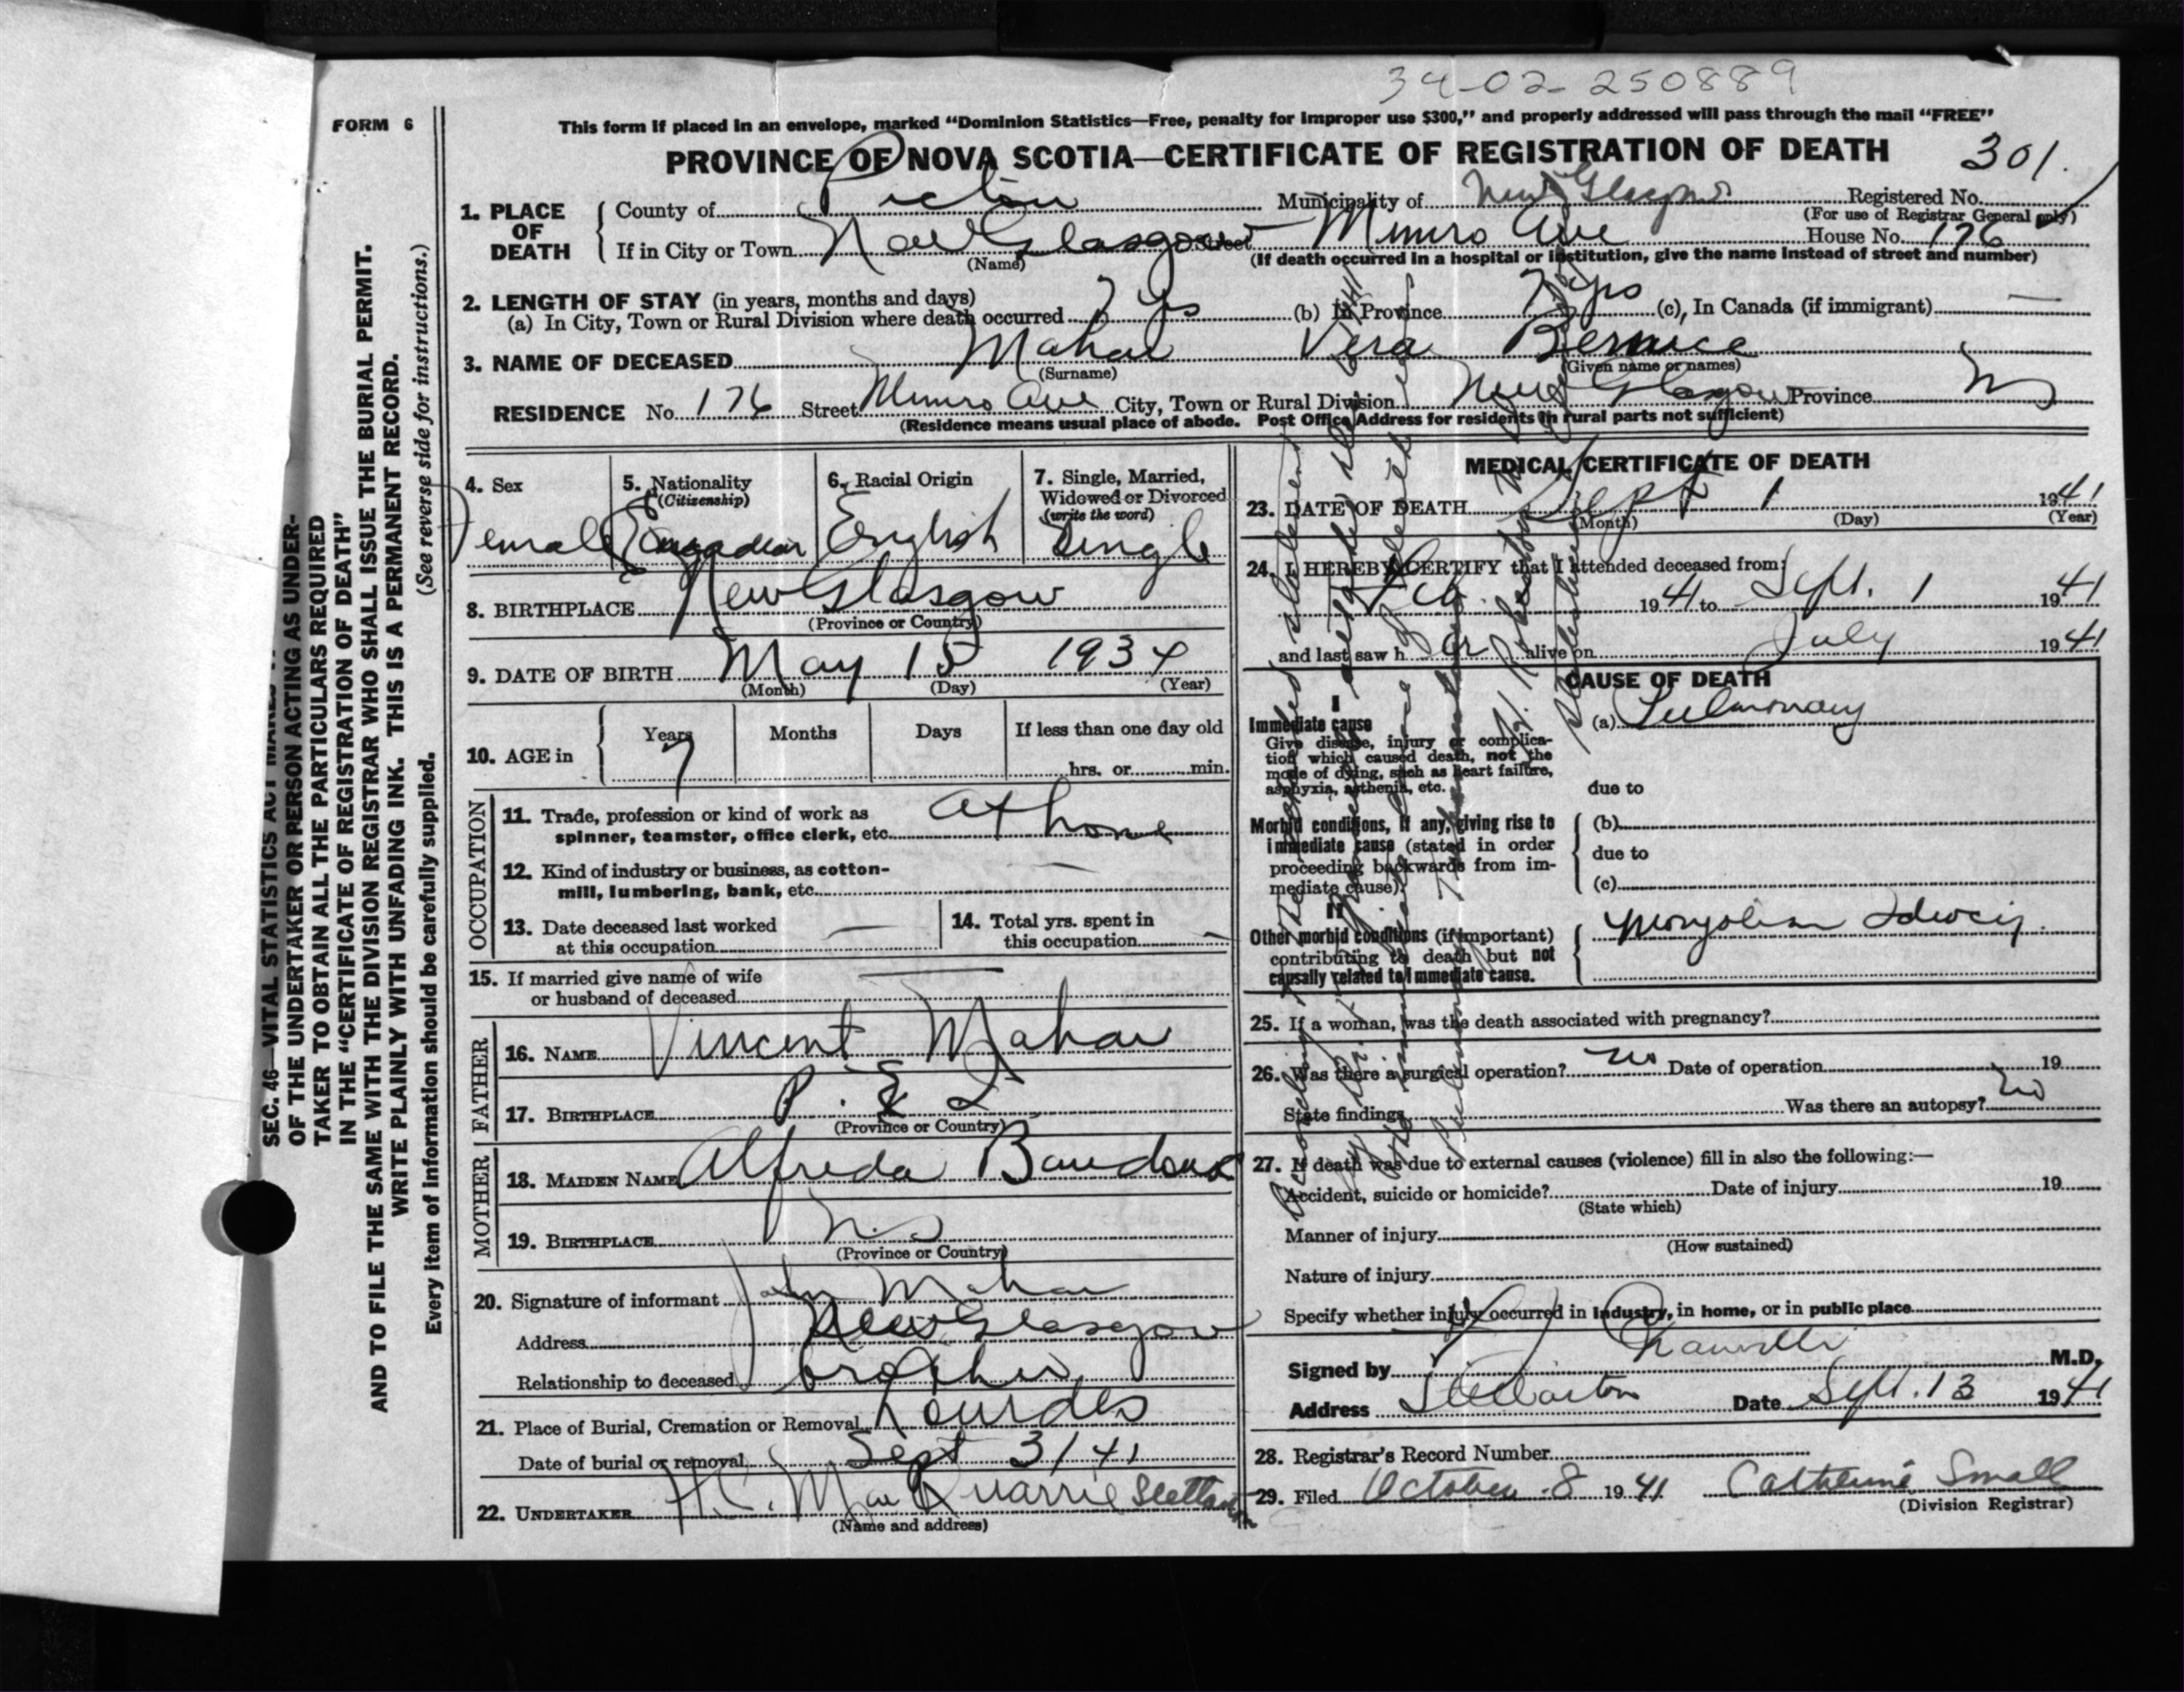 34-02-250889
FORM 6
This form if placed in an envelope, marked “Dominion Statistics—Free, penalty for improper use $300,” and properly addressed will pass through the mail “FREE”
PROVINCE OF NOVA SCOTIA—CERTIFICATE OF REGISTRATION OF DEATH 301.
1. PLACE OF DEATH
County of Pictou Municipality of New Glasgow Registered No.
(For use of Registrar General only)
If in City or Town New Glasgow Street Munro Ave House No. 176
(Name) (If death occurred in a hospital or institution, give the name instead of street and number)
2. LENGTH OF STAY (in years, months and days)
(a) In City, Town or Rural Division where death occurred 7 yrs (b) In Province 7 yrs (c) In Canada (if immigrant) —
3. NAME OF DECEASED Mahar Vera Bernice
(Surname) (Given name or names)
RESIDENCE No. 176 Street Munro Ave City, Town or Rural Division New Glasgow Province NS
(Residence means usual place of abode. Post Office Address for residents in rural parts not sufficient)
4. Sex Female
5. Nationality (Citizenship) Canadian
6. Racial Origin English
7. Single, Married, Widowed or Divorced (write the word) Single
8. BIRTHPLACE New Glasgow
(Province or Country)
9. DATE OF BIRTH May 15 1934
(Month) (Day) (Year)
10. AGE in Years 7 Months Days If less than one day old
hrs. or min.
OCCUPATION
11. Trade, profession or kind of work as
spinner, teamster, office clerk, etc. at home
12. Kind of industry or business, as cotton-
mill, lumbering, bank, etc. —
13. Date deceased last worked
at this occupation —
14. Total yrs. spent in
this occupation —
15. If married give name of wife
or husband of deceased —
FATHER
16. NAME Vincent Mahar
17. BIRTHPLACE P. E I.
(Province or Country)
MOTHER
18. MAIDEN NAME Alfreda Baudoux
19. BIRTHPLACE N.S
(Province or Country)
20. Signature of informant John Mahar
Address New Glasgow
Relationship to deceased brother
21. Place of Burial, Cremation or Removal Lourdes
Date of burial or removal Sept 3/41
22. UNDERTAKER H.C. MacQuarrie Stellarton
(Name and address)
MEDICAL CERTIFICATE OF DEATH
23. DATE OF DEATH Sept 1 1941
(Month) (Day) (Year)
24. I HEREBY CERTIFY that I attended deceased from:
Feb. 1941 to Sept. 1 1941
and last saw h er alive on July 1941
CAUSE OF DEATH
I
Immediate cause
Give disease, injury or complica-
tion which caused death, not the
mode of dying, such as heart failure,
asphyxia, asthenia, etc.
(a) Pulmonary
due to
Morbid conditions, if any, giving rise to
immediate cause (stated in order
proceeding backwards from im-
mediate cause).
(b)
due to
(c)
II
Other morbid conditions (if important)
contributing to death but not
causally related to immediate cause.
Mongolian Idiocy.
25. If a woman, was the death associated with pregnancy?
26. Was there a surgical operation? no Date of operation 19
State findings Was there an autopsy? no
27. If death was due to external causes (violence) fill in also the following:—
Accident, suicide or homicide? Date of injury 19
(State which)
Manner of injury
(How sustained)
Nature of injury
Specify whether injury occurred in industry, in home, or in public place
Signed by M.D.
Address Stellarton Date Sept. 13 1941
28. Registrar's Record Number
29. Filed October 8 1941 Catherine Small
(Division Registrar)
OF THE UNDERTAKER OR PERSON ACTING AS UNDER-
TAKER TO OBTAIN ALL THE PARTICULARS REQUIRED
IN THE “CERTIFICATE OF REGISTRATION OF DEATH”
AND TO FILE THE SAME WITH THE DIVISION REGISTRAR WHO SHALL ISSUE THE BURIAL PERMIT.
WRITE PLAINLY WITH UNFADING INK. THIS IS A PERMANENT RECORD.
Every item of information should be carefully supplied. (See reverse side for instructions.)
SEC. 46—VITAL STATISTICS ACT